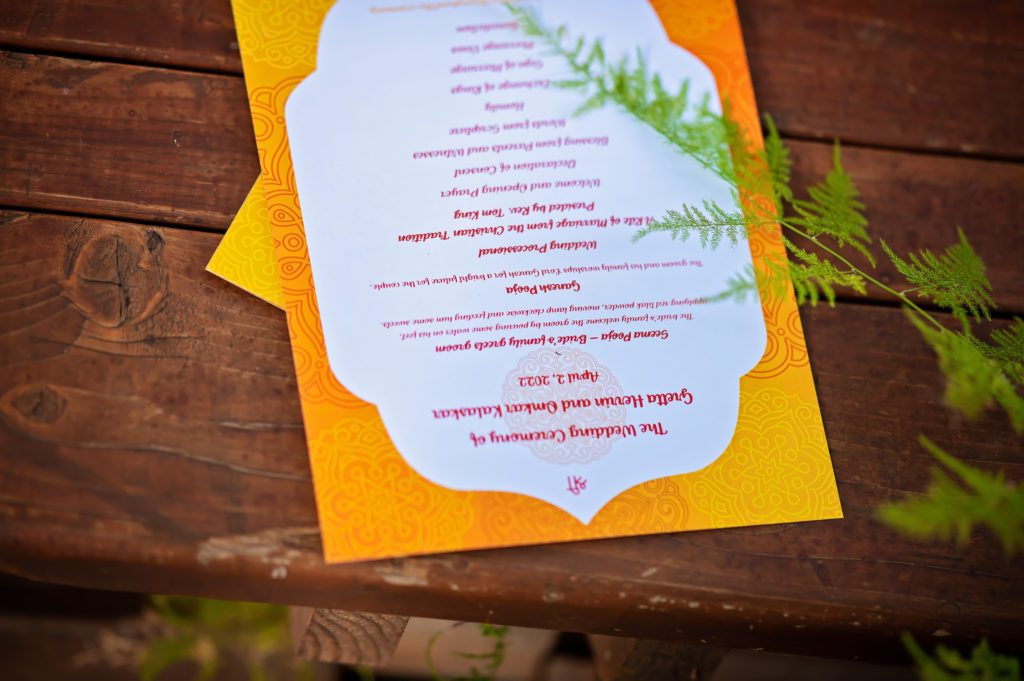 The Wedding Ceremony of
Gretta Herrin and Omkar Kalaskar
April 2, 2022
Seema Pooja – Bride's family greets groom
The bride's family welcome the groom by pouring some water on his feet,
applying red tilak powder, moving lamp clockwise and feeding him some sweets.
Ganesh Pooja
The groom and his family worships Lord Ganesh for a bright future for the couple.
Wedding Processional
A Rite of Marriage from the Christian Tradition
Presided by Rev. Tom King
Welcome and Opening Prayer
Declaration of Consent
Blessing from Parents and Witnesses
Words from Scripture
Homily
Exchange of Rings
Sign of Marriage
Marriage Vows
Benediction